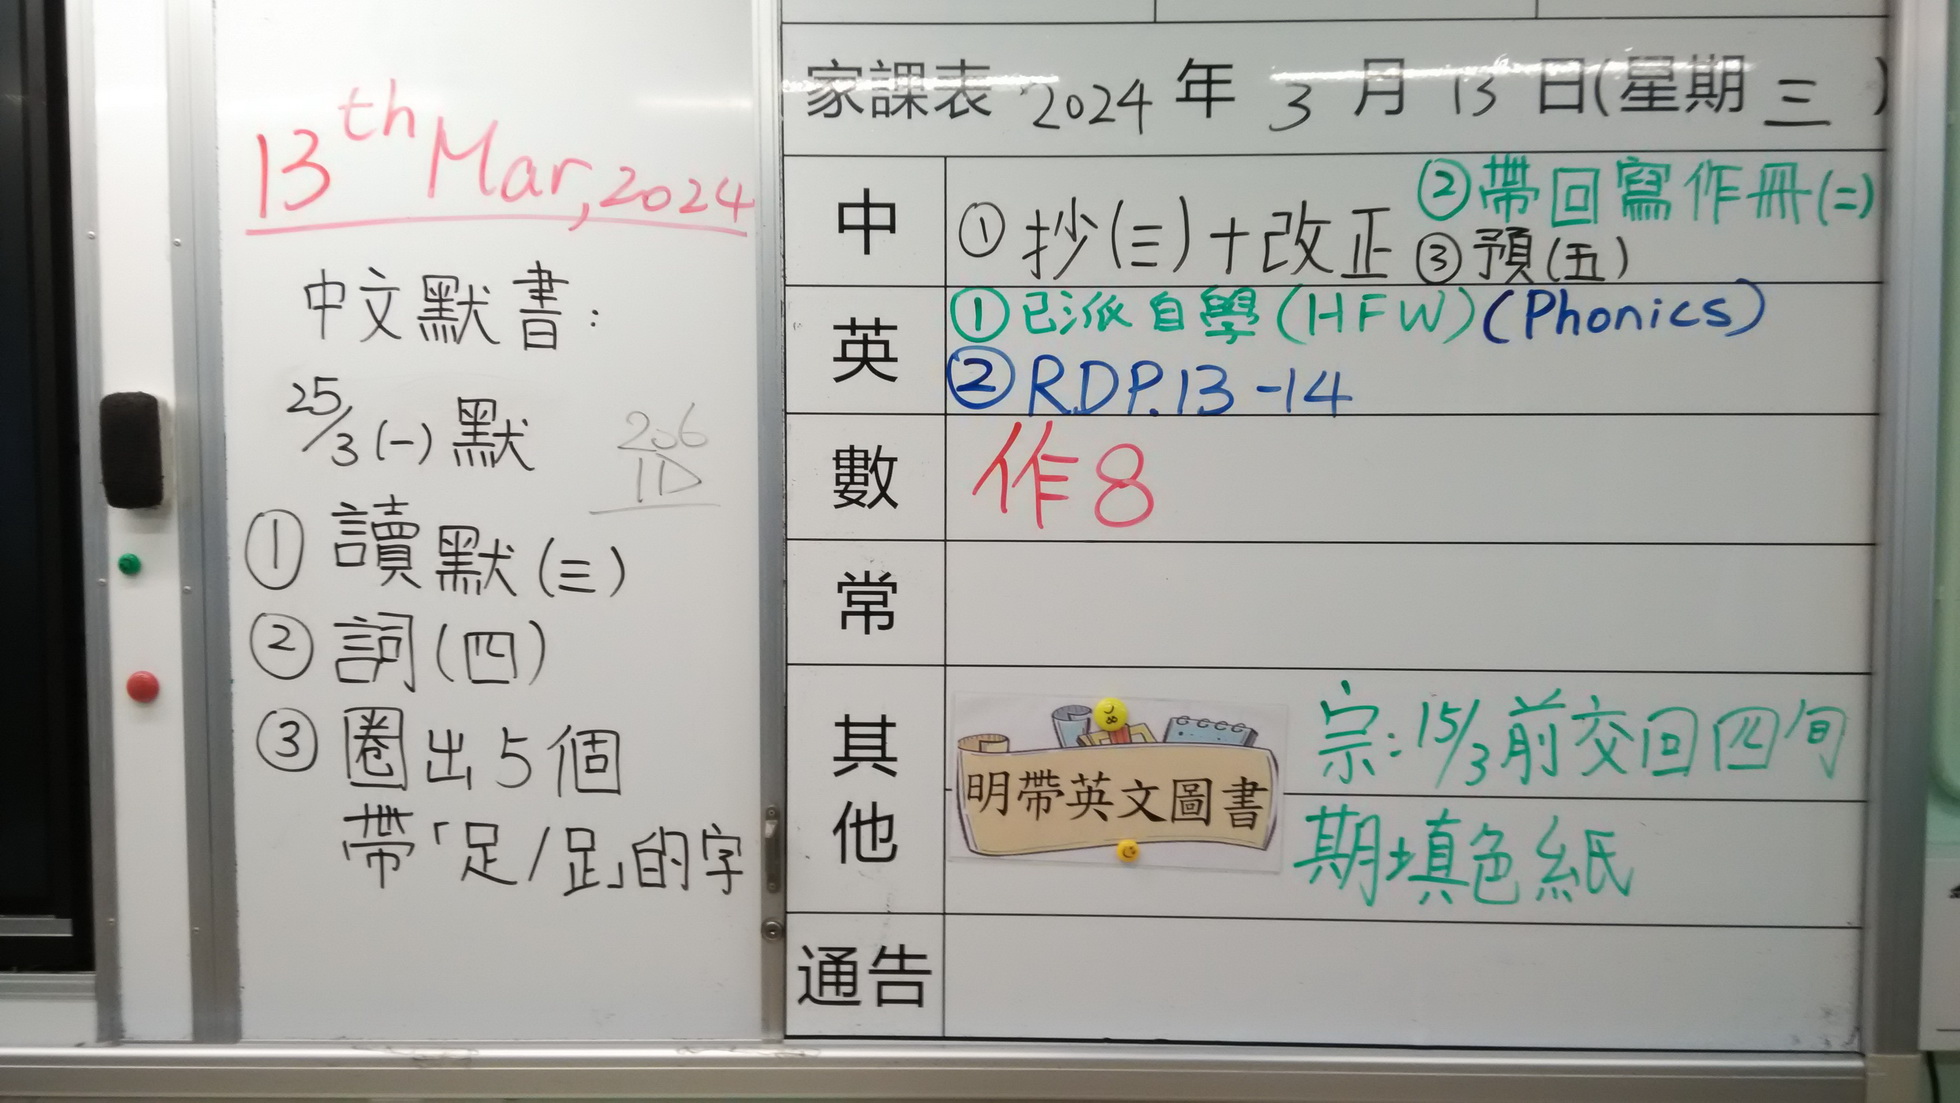 13th Mar, 2024
中文默書:
25/3(一)默
206
1D
① 讀默(三)
② 詞(四)
③ 圈出5個
帶「足/𧾷」的字
家課表 2024 年 3 月 13 日(星期 三 )
中
① 抄(三)+改正
②帶回寫作冊(二)
③預(五)
英
①已派自學(HFW)(Phonics)
② R.D.P.13-14
數
作8
常
其他
明帶英文圖書
宗:15/3前交回四旬
期填色紙
通告